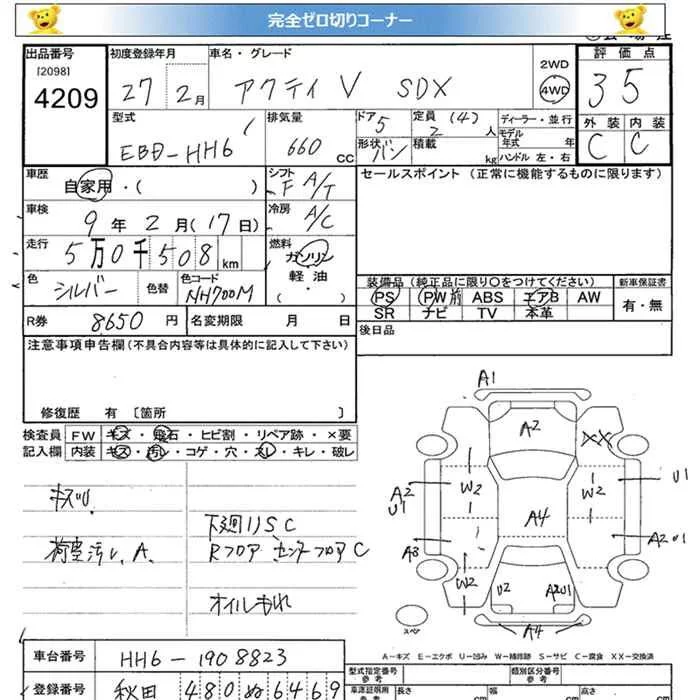 完全ゼロ切りコーナー
出品番号 初度登録年月 車名・グレード 2WD 評価点
[2098] 4209 27 2月 アクティ V SDX 4WD 35
型式 排気量 ドア 5 定員 (4) 2 人 ディーラー・並行 外装 内装
EBD-HH6 660 CC 形状 バン 積載 kg モデル年式 年式 ハンドル 左・右 C C
車歴 自家用・( ) シフト F A/T セールスポイント(正常に機能するものに限ります)
車検 9年 2月(17日) 冷房 A/C
走行 5万0千508 km 燃料 ガソリン 軽油 ・ ( )
色 シルバー 色替 色コード NH700M
装備品(純正品に限り○をつけてください) 新車保証書
PS PW前 ABS エアB AW 有・無
SR ナビ TV 本革
R券 8650 円 名変期限 月 日 後日品
注意事項申告欄(不具合内容等は具体的に記入して下さい)
修復歴 有 〔箇所 〕
検査員 FW キズ・飛石・ヒビ割・リペア跡・×要
記入欄 内装 キズ・汚レ・コゲ・穴・スレ・キレ・破レ
下廻りS.C
荷室汚レ、A. Rフロア センターフロアC
オイルもれ
A1
A2 XX
W2 W2 U1
A2 U1
A4
A3 A2 U1
W2
U2 A2U1
スペア A4
A-キズ E-エクボ U-凹み W-補修跡 S-サビ C-腐食 XX-交換済
車台番号 HH6-1908823 型式指定番号 参考 類別区分番号 参考
登録番号 秋田 480 ぬ 6469 車庫証明用 参考 長さ cm 幅 cm 高さ cm